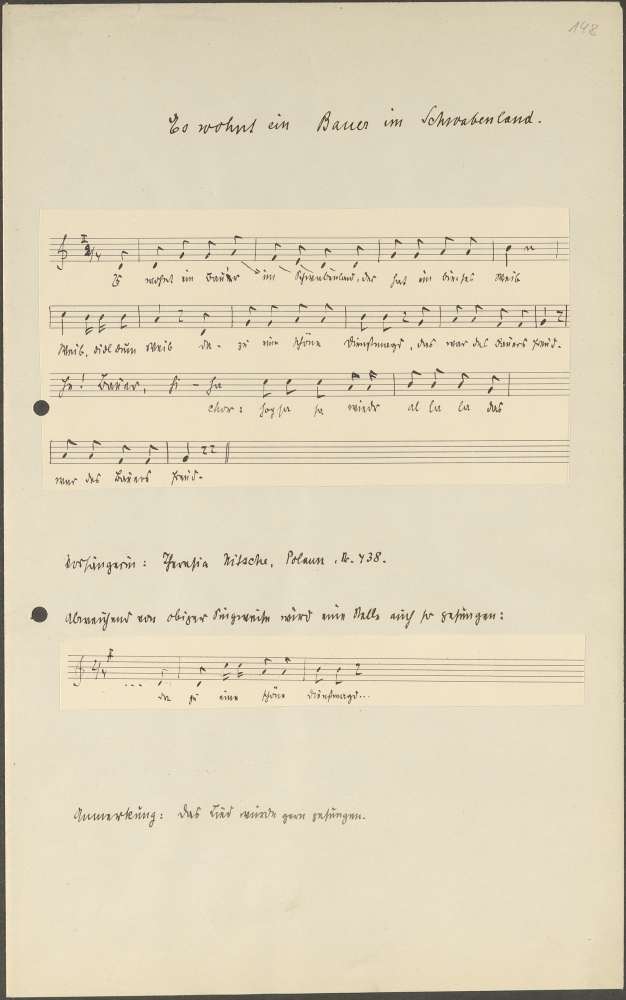 148
Es wohnt ein Bauer im Schwabenland.
2/4
Es wohnt ein Bauer im Schwabenland, der hat ein Weib
Weib, didl dum Weib da- zu eine schöne Dienstmagd, das war des Bauers Freud-
He! Bauer, hi - ha
Chor: hopsa sa wieder al la la das
war des Bauers Freud-
Vorsängerin: Theresia Nitsche, Polaun, Nr. 738.
Abweichend von obiger Singweise wird eine Stelle auch so gesungen:
2/4
... da zu eine schöne Dienstmagd...
Anmerkung: Das Lied wurde gern gesungen.